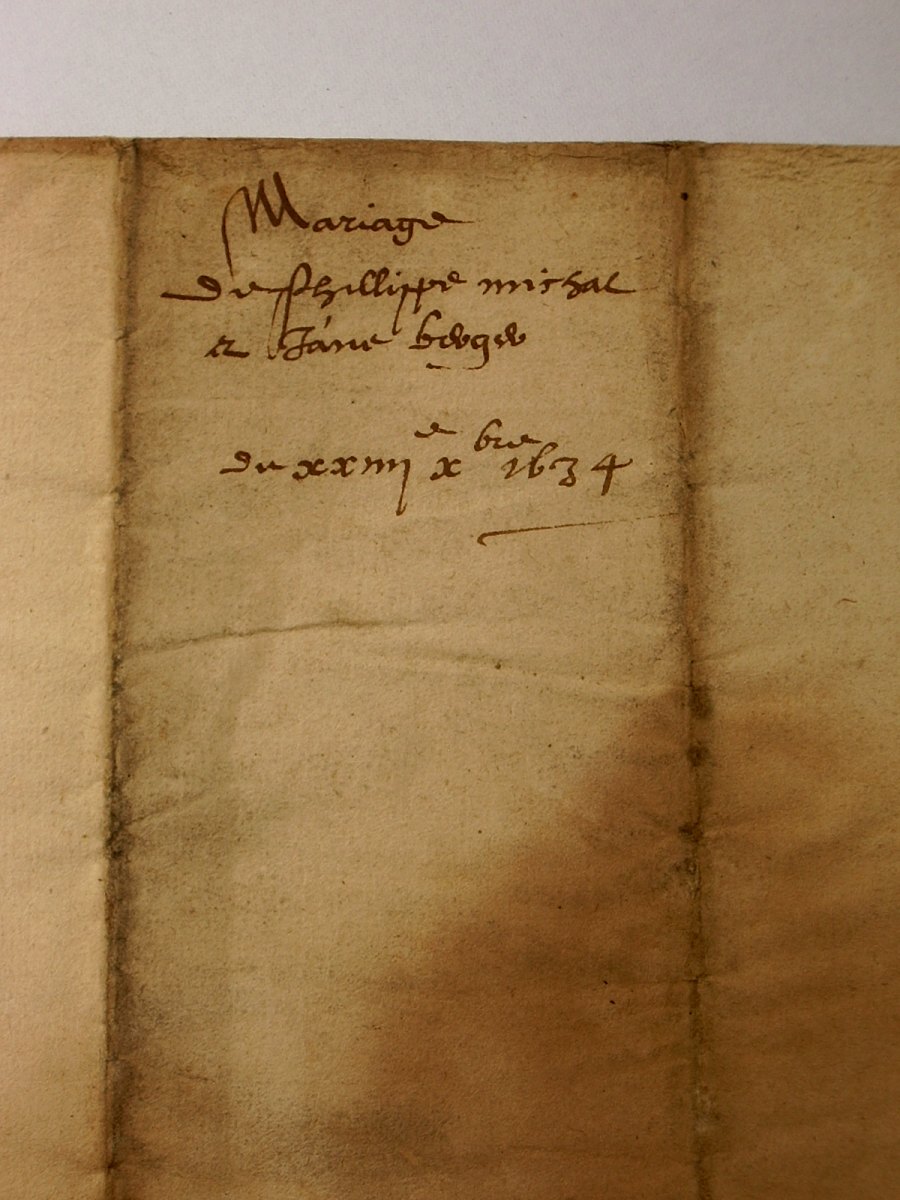 Mariage
de Phillippe michal
et Jane berger
du xxiiij e x bre 1634